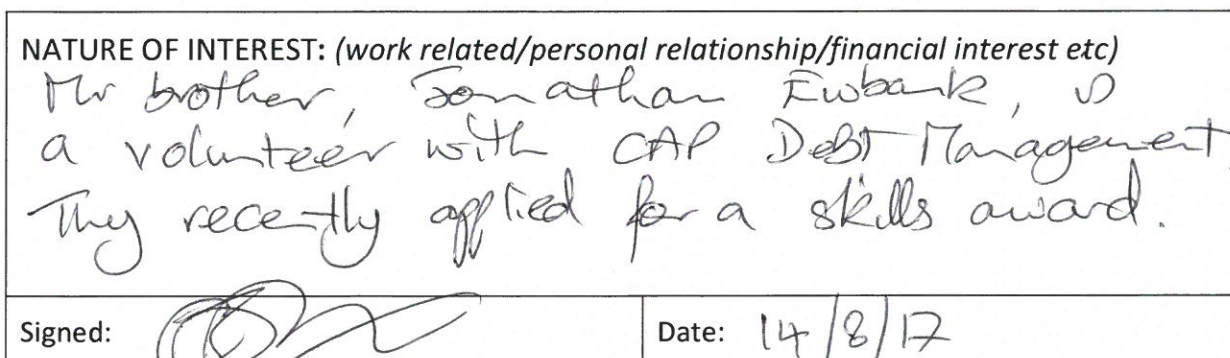 NATURE OF INTEREST: (work related/personal relationship/financial interest etc)
My brother, Jonathan Ewbank, is
a volunteer with CAP Debt Management.
They recently applied for a skills award.
Signed:
Date: 14/8/17